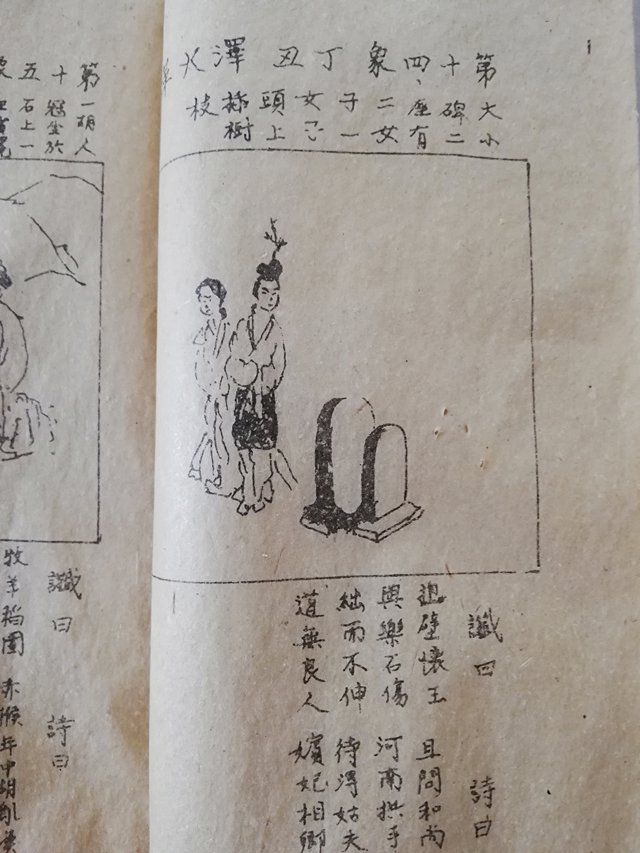 第十四、象丁丑澤火
大小碑二座有二女子一女子頭上插樹枝
讖曰
壁懷玉
與樂石傷
絀而不伸
道無良人
詩曰
且問和尚
河南拱手
待得姑夫
嬪妃相鄉
第十五
一胡人冠坐於石上一
讖曰
牧羊稻園
詩曰
赤猴年中胡亂